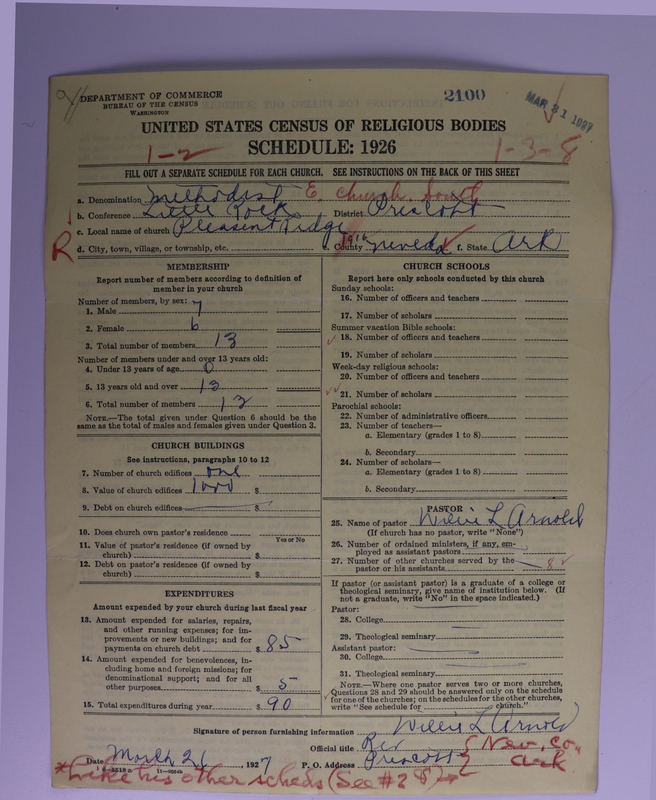 DEPARTMENT OF COMMERCE
BUREAU OF THE CENSUS
WASHINGTON
2100
MAR 31 1927
UNITED STATES CENSUS OF RELIGIOUS BODIES
SCHEDULE: 1926
1-2
1-3-8
FILL OUT A SEPARATE SCHEDULE FOR EACH CHURCH. SEE INSTRUCTIONS ON THE BACK OF THIS SHEET
a. Denomination Methodist E. Church. South
b. Conference Little Rock District Prescott
c. Local name of church Pleasent Ridge
R
d. City, town, village, or township, etc. County Nevada f. State Ark
MEMBERSHIP
Report number of members according to definition of
member in your church
Number of members, by sex:
1. Male 7
2. Female 6
3. Total number of members 13
Number of members under and over 13 years old:
4. Under 13 years of age 0
5. 13 years old and over 13
6. Total number of members 13
NOTE.—The total given under Question 6 should be the
same as the total of males and females given under Question 3.
CHURCH BUILDINGS
See instructions, paragraphs 10 to 12
7. Number of church edifices one
8. Value of church edifices 1000 $
9. Debt on church edifices $
10. Does church own pastor's residence
Yes or No
11. Value of pastor's residence (if owned by
church) $
12. Debt on pastor's residence (if owned by
church) $
EXPENDITURES
Amount expended by your church during last fiscal year
13. Amount expended for salaries, repairs,
and other running expenses; for im-
provements or new buildings; and for
payments on church debt $ 85
14. Amount expended for benevolences, in-
cluding home and foreign missions; for
denominational support; and for all
other purposes $ 5
15. Total expenditures during year $ 90
CHURCH SCHOOLS
Report here only schools conducted by this church
Sunday schools:
16. Number of officers and teachers
17. Number of scholars
Summer vacation Bible schools:
18. Number of officers and teachers
19. Number of scholars
Week-day religious schools:
20. Number of officers and teachers
21. Number of scholars
Parochial schools:
22. Number of administrative officers
23. Number of teachers—
a. Elementary (grades 1 to 8)
b. Secondary
24. Number of scholars—
a. Elementary (grades 1 to 8)
b. Secondary
PASTOR
25. Name of pastor Willie L Arnold
(If church has no pastor, write "None")
26. Number of ordained ministers, if any, em-
ployed as assistant pastors
27. Number of other churches served by the
pastor or his assistants 8
If pastor (or assistant pastor) is a graduate of a college or
theological seminary, give name of institution below. (If
not a graduate, write "No" in the space indicated.)
Pastor:
28. College
29. Theological seminary
Assistant pastor:
30. College
31. Theological seminary
NOTE.—Where one pastor serves two or more churches,
Questions 28 and 29 should be answered only on the schedule
for one of the churches; on the schedules for the other churches,
write "See schedule for church."
Signature of person furnishing information Willie L Arnold
Official title Rev
Date March 21, 1927 P. O. Address Prescott Nev, Co, Ark
*Like his other scheds (See #28)